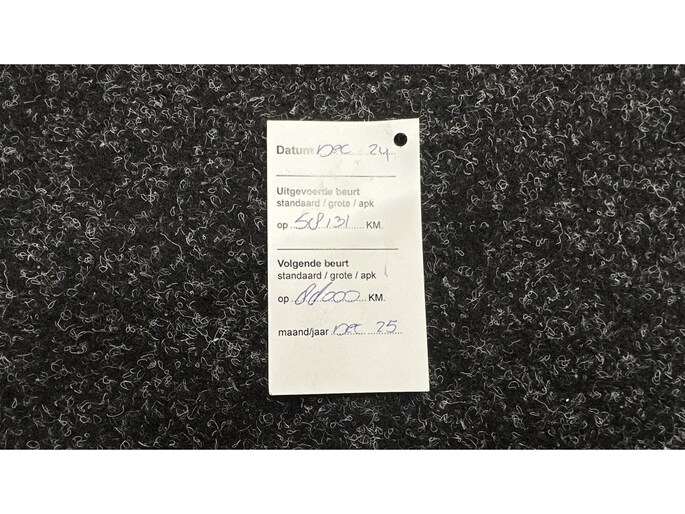 Datum Dec 24
Uitgevoerde beurt
standaard / grote / apk
op 58131 KM.
Volgende beurt
standaard / grote / apk
op 88.000 KM.
maand/jaar Dec 25